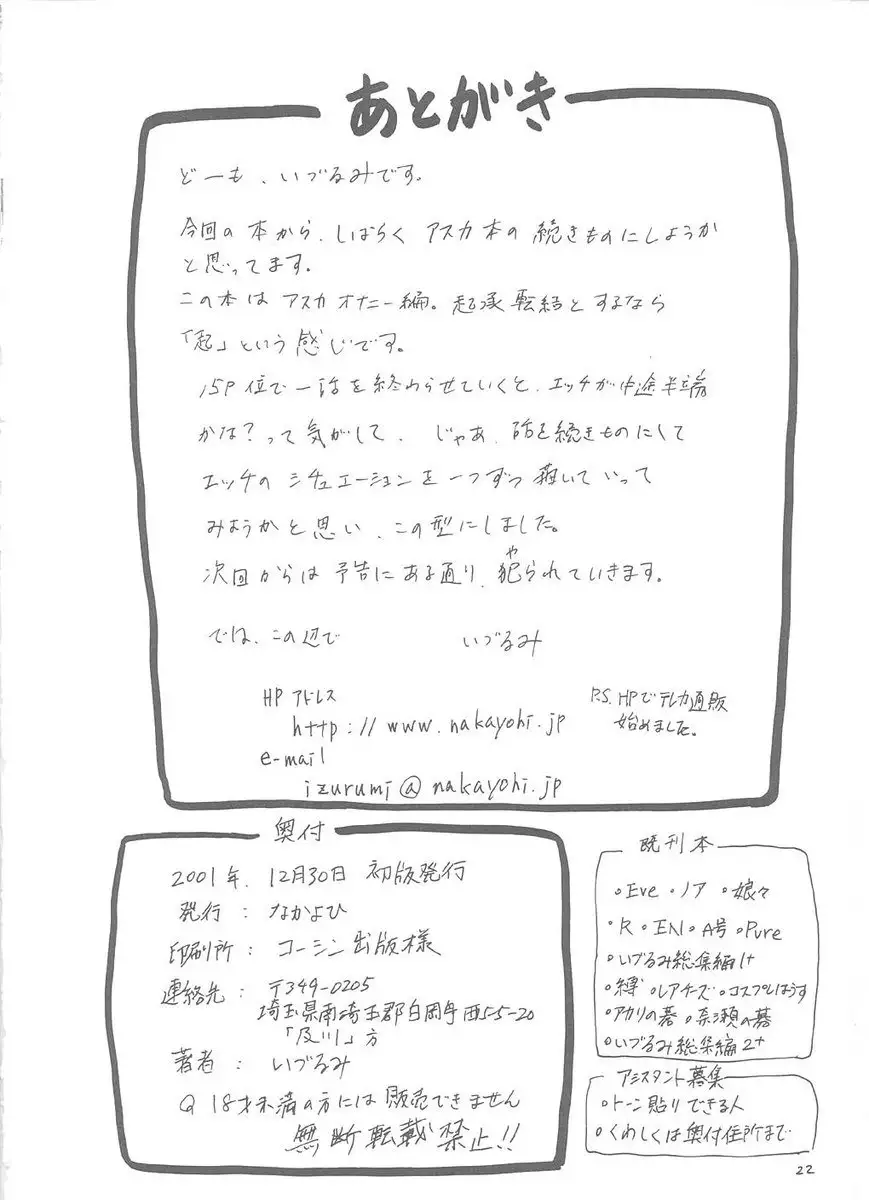 あとがき
どーも、いづるみです。
今回の本から、しばらくアスカ本の続きものにしようか
と思ってます。
この本はアスカオナニー編。起承転結とするなら
「起」という感じです。
15P位で一話を終わらせていくと、エッチが中途半端
かな?って気がして、じゃあ、話を続きものにして
エッチのシチュエーションを一つずつ描いていって
みようかと思い、この型にしました。
次回からは予告にある通り、犯られていきます。
や
では、この辺で いづるみ
HPアドレス
http://www.nakayohi.jp
e-mail
izurumi@nakayohi.jp
P.S. HPでテレカ通販
始めました。
奥付
2001年、12月30日 初版発行
発行: なかよひ
印刷所: コーシン出版様
連絡先: 〒349-0205
埼玉県南埼玉郡白岡町西5-5-20
「及川」方
著者: いづるみ
18才未満の方には販売できません
無断転載禁止!!
既刊本
・Eve ・ノア ・娘々
・R ・EN1 ・A号 ・Pure
・いづるみ総集編1+
・縛 ・レアチーズ ・コスプレはうす
・アカリの碁 ・奈瀬の碁
・いづるみ総集編2+
アシスタント募集
・トーン貼りできる人
・くわしくは奥付住所まで
22